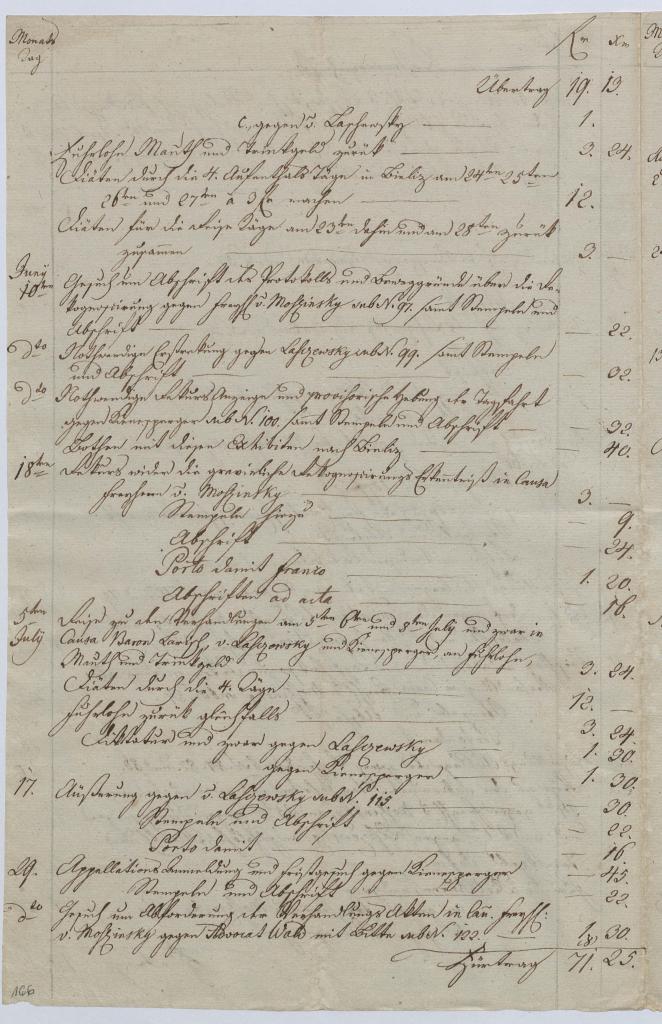 Monats Tag
f xr
Übertrag 19. 13.
c., gegen v. Laschewsky — 1.
Fuhrlohn Mauth und Trinkgeld zurük — 3. 24.
Diäten durch die 4. Aufenthals Täge in Bieliz am 24ten 25ten
26ten und 27ten à 3 f machen — 12.
Diäten für die Reise Täge am 23ten dahin und am 28ten zurük
zusammen 3. —
Juny
10ten Gesuch um Abschrift des Protokolls und Beweggründe über die Re-
kognoszirung gegen Freyh v. Moszinsky sub N. 97. samt Stempeln und
Abschrift — 22.
dto Nothwendige Erstrekung gegen Laszewsky sub N. 99. samt Stempeln
und Abschrift — 32.
dto Nothwendige Rekurs Anzeige und provisorische Hebung der Tagsfahrt
gegen Kienesperger sub N. 100. samt Stempeln und Abschrift — 32.
Bothen mit diesen Exhibiten nach Bieliz — 40.
18ten Rekurs wider die gravirliche Rekognoszirungs Erkentniß in Causa
Freyherrn v. Moszinsky 3. —
Stempeln hiezu — 9.
Abschrift — 24.
Porto damit franco — 1. 20.
Abschriften ad acta — 16.
5ten
July Reise zu den Verhandlungen am 5ten 6ten und 8ten July und zwar in
Causa Baron Larisch, v. Laszewsky und Kienesperger, an Fuhrlohn,
Mauth und Trinkgeld — 3. 24.
Diäten durch die 4. Täge — 12. —
Fuhrlohn zurük gleichfalls — 3. 24.
Diktatur und zwar gegen Laszewsky — 1. 30.
gegen Kienesperger — 1. 30.
17. Äußerung gegen v. Laszewsky sub N. 115. — 30.
Stempeln und Abschrift — 22.
Porto damit — 16.
29. Appellations Anmeldung und Fristgesuch gegen Kienesperger — 45.
Stempeln und Abschrift — 22.
dto Gesuch um Abforderung der Verhandlungs Akten in Cau. Freyh:
v. Moszinsky gegen Advocat Wald mit Bitte sub N. 122. — 1. 30.
Fürtrag 71. 25.
166